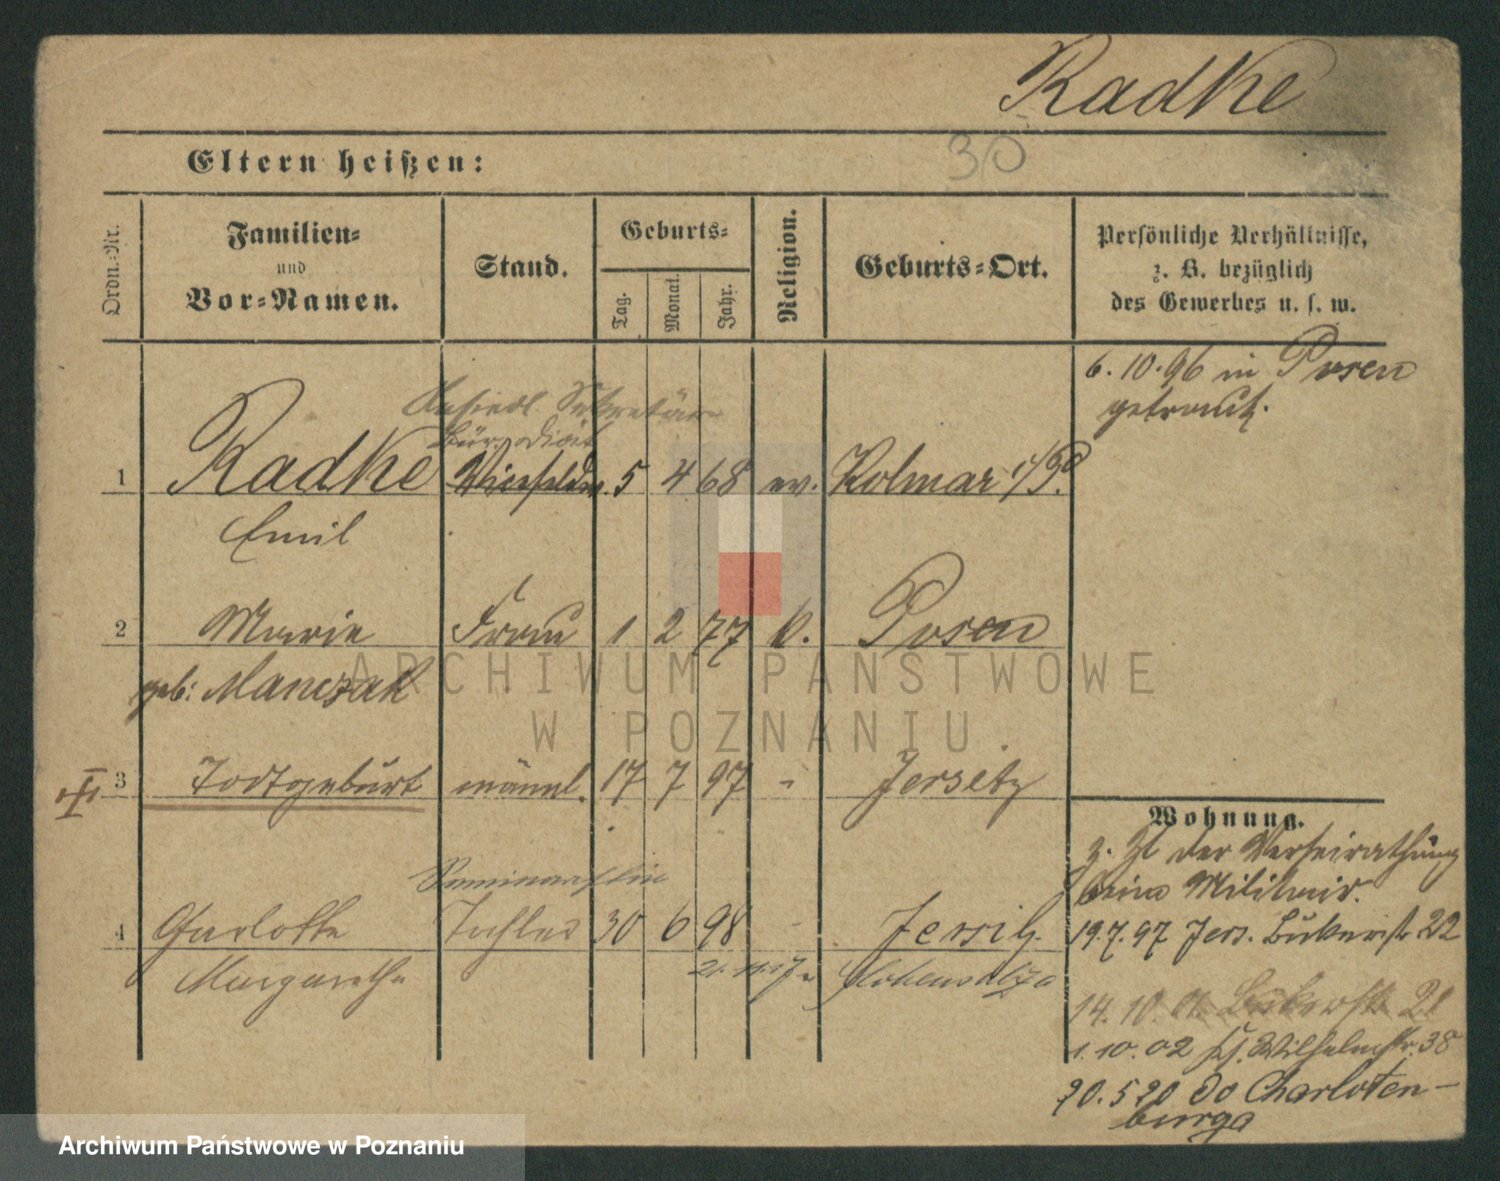 Radke
30
Eltern heißen:
Ordn.-Nr.
Familien-
und
Vor-Namen.
Stand.
Geburts-
Tag.
Monat.
Jahr.
Religion.
Geburts-Ort.
Persönliche Verhältnisse,
z. B. bezüglich
des Gewerbes u. s. w.
6.10.96 in Posen
getraut.
Ansiedl. Sekretär
Bürodiät
1 Radke Vizefeldw. 5 4 68 ev. Kolmar i/P.
Emil
2 Marie Frau 1 2 77 k. Posen
geb: Manczak
3 Todtgeburt männl. 17 7 97 " Jersitz
Wohnung.
z. Zt der Verheirathung
beim Militair.
Seminaristin
4 Charlotte Tochter 30 6 98 Jersitz.
19.7.97 Jers. Bukerstr 22
Margarethe 21.11.17 n Hohensalza
14.10.01. Bukerstr 21
1.10.02 Ks. Wilhelmstr. 38
20.5 20 do Charloten-
burga
ARCHIWUM PAŃSTWOWE
W POZNANIU.
Archiwum Państwowe w Poznaniu